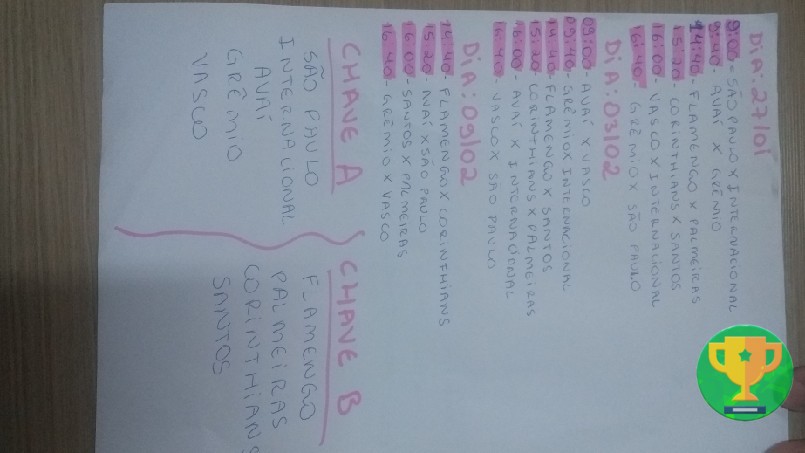 DIA: 27/01
9:00 - SÃO PAULO X INTERNACIONAL
9:40 - AVAÍ X GRÊMIO
14:40 - FLAMENGO X PALMEIRAS
15:20 - CORINTHIANS X SANTOS
16:00 - VASCO X INTERNACIONAL
16:40 - GRÊMIO X SÃO PAULO
DIA: 03/02
09:00 - AVAÍ X VASCO
09:40 - GRÊMIO X INTERNACIONAL
14:40 FLAMENGO X SANTOS
15:20 - CORINTHIANS X PALMEIRAS
16:00 - AVAÍ X INTERNACIONAL
16:40 - VASCO X SÃO PAULO
DIA: 09/02
14:40 - FLAMENGO X CORINTHIANS
15:20 - AVAÍ X SÃO PAULO
16:00 - SANTOS X PALMEIRAS
16:40 - GRÊMIO X VASCO
CHAVE A
SÃO PAULO
INTERNACIONAL
AVAÍ
GRÊMIO
VASCO
CHAVE B
FLAMENGO
PALMEIRAS
CORINTHIANS
SANTOS